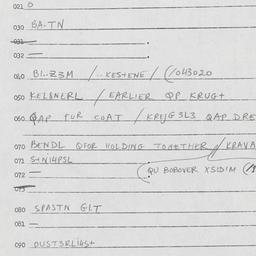 021 O
030 SA.TN
031
032
040 BI..Z3M /..KESTENE / (/043020
050 KELSNERL / EARLIER QP KRUG+
060 QAP FUR COAT / KRUG3L3 QAP DRE
070 BENDL QFOR HOLDING TOGETHER / KRAVA
071 S+NI4PSL
072 (QU BOBOVER XSIDIM
073
080 SPASTN GLT
081
090 OUST3RLI4S+